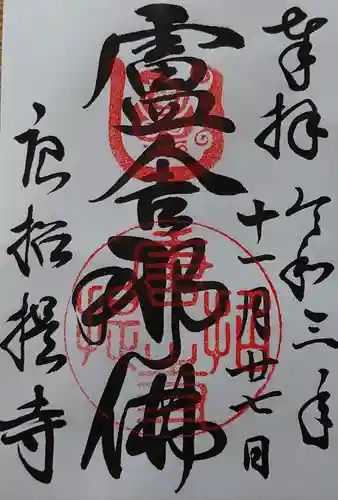 奉拝
令和三年
十一月廿七日
盧舎那佛
唐招提寺